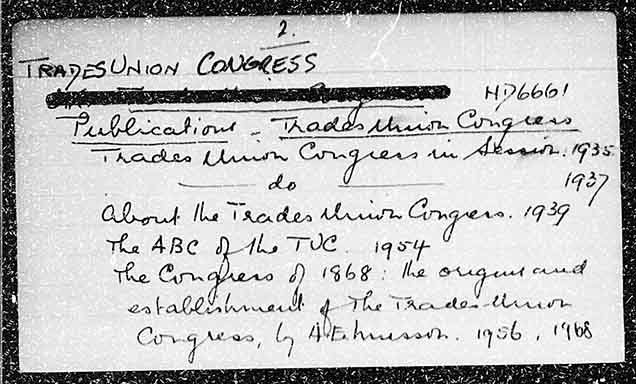 2.
TRADES UNION CONGRESS
HD6661
Publications - Trades Union Congress
Trades Union Congress in Session. 1935
do 1937
About the Trades Union Congress. 1939
The ABC of the TUC. 1954
The Congress of 1868: the origins and
establishment of The Trades Union
Congress, by A.E. Musson. 1956, 1968